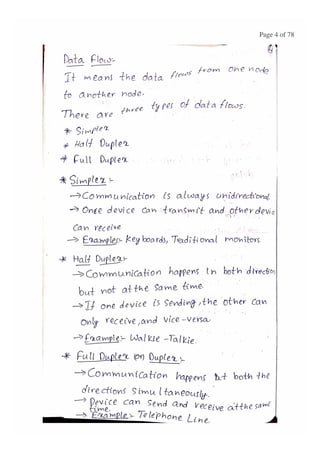 Page 4 of 78
Data Flow:-
It means the data flows from one node
to another node.
There are three types of data flows.
* Simplex
* Half Duplex
* Full Duplex
* Simplex :-
→ Communication is always unidirectional
→ One device can transmit and other device
can receive
→ Example:- Key boards, Traditional monitors
* Half Duplex:-
→ Communication happens in both direction
but not at the same time.
→ If one device is sending, the other can
only receive, and vice-versa.
→ Example:- Walkie-Talkie.
* Full Duplex (or) Duplex:-
→ Communication happens in both the
directions simultaneously.
→ Device can send and receive at the same
time.
→ Example:- Telephone Line.